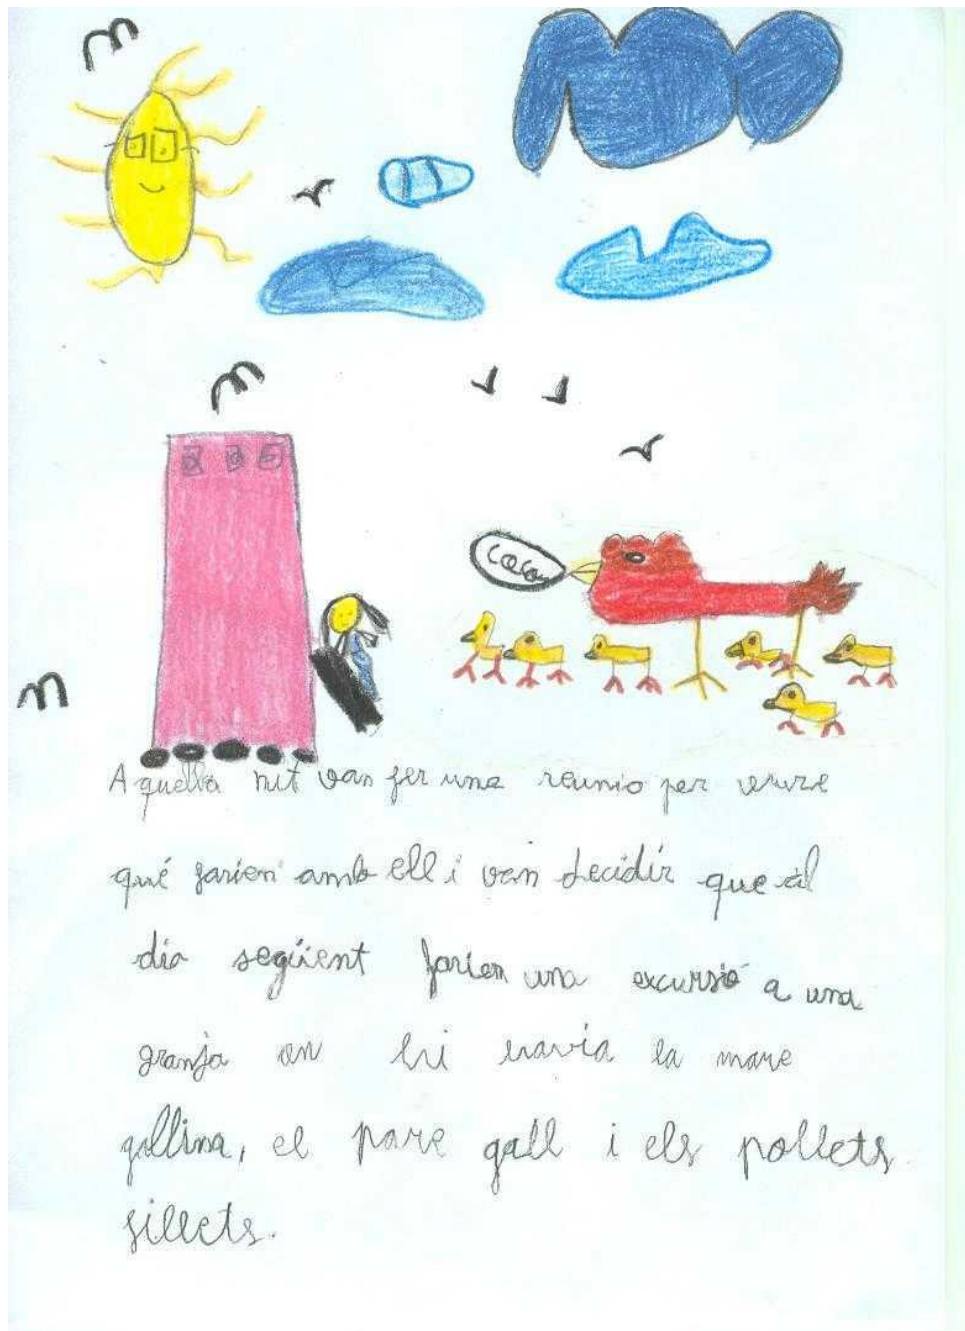 Cocoo
Aquella nit van fer una reunio per veure
qué farien amb ell i van decidir que al
dia següent farien una excursió a una
granja on hi havia la mare
gallina, el pare gall i els pollets
fillets.